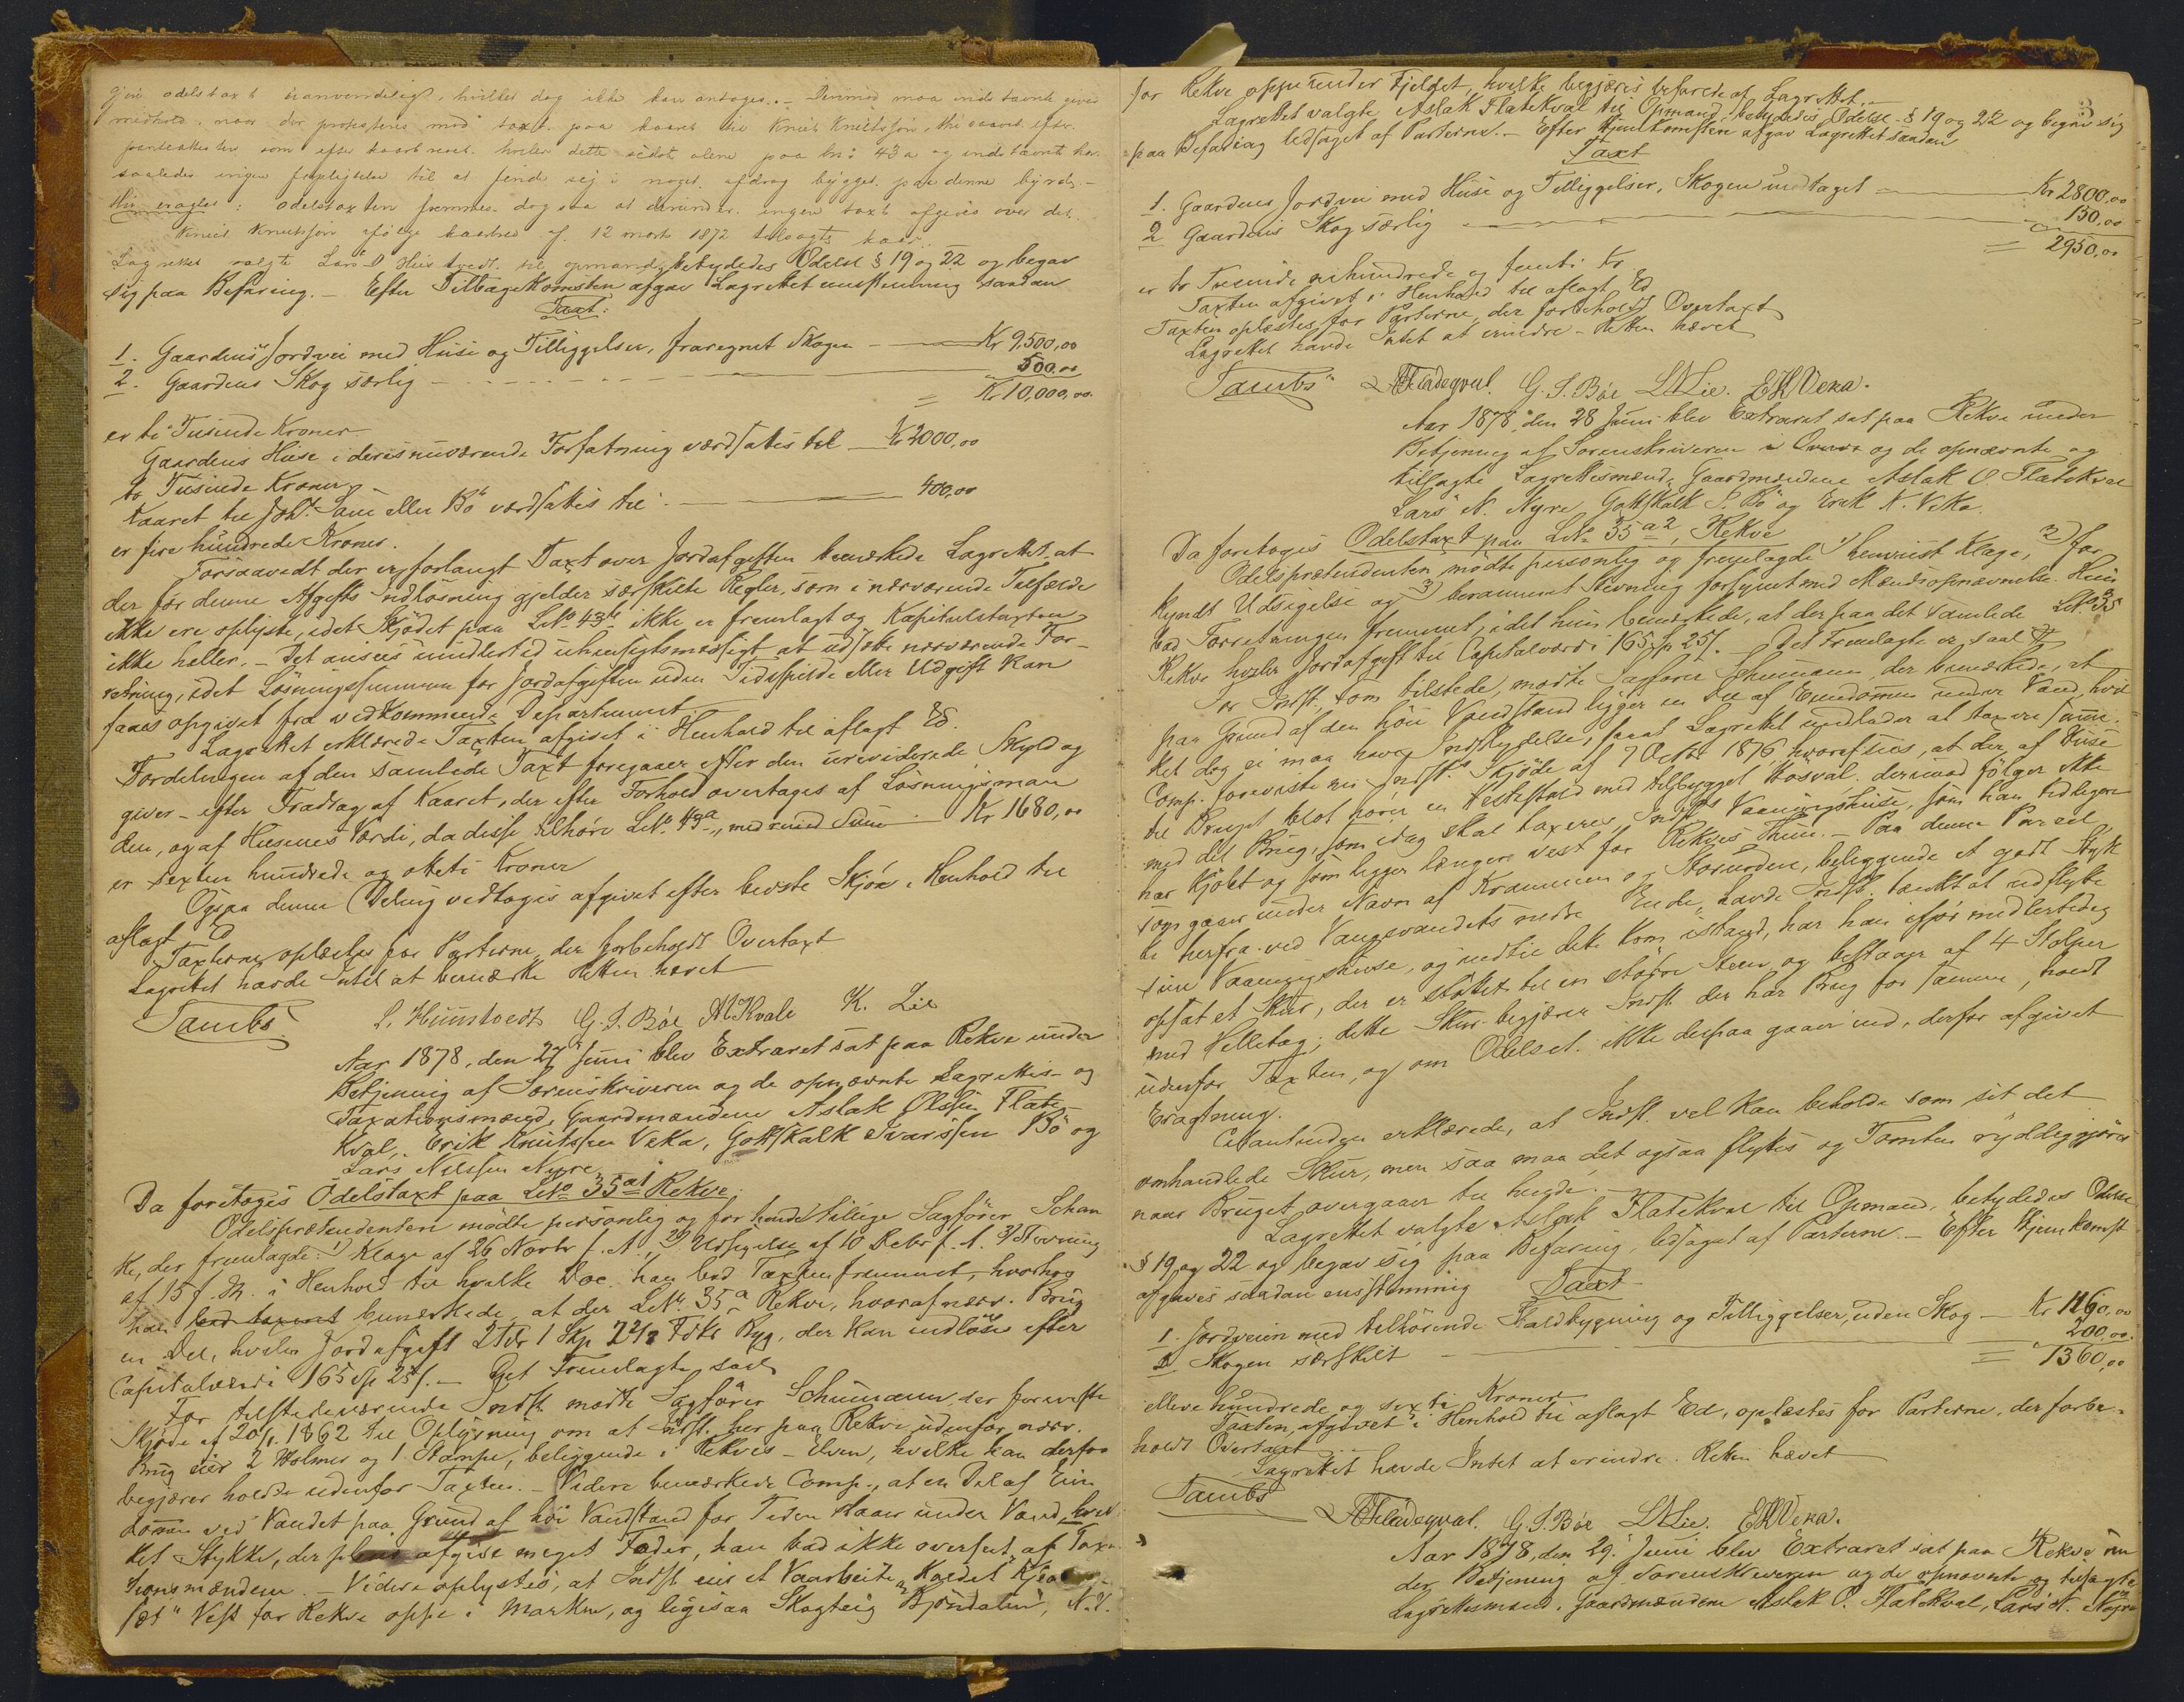 gjøre odelstaxt uanvendelig, hvilket dog ikke kan antages. – Derimod maa indstævnte gives
medhold, naar der protesteres mod taxt paa kaaret til Knut Knutssøn, thi kaaret efter
panteattesten som efter kaarbrevet hviler dette sidste alene paa Ln: 43a og indstævnte har
saaledes ingen forpligtelse til at finde sig i noget afdrag bygget paa denne byrde –
Thi eragtes: Odelstaxten fremmes dog saa at derunder ingen taxt afgives over det
Knut Knutssøn ifølge kaarbrev af 12 marts 1872 tillagte kaar.
Lagrettet valgte Lars Hunstvedt til opmand, betydedes Odelsl. § 19 og 22 og begav
sig paa Befaring. – Efter Tilbagekomsten afgav Lagrettet eenstemmig saadan
Taxt:
1. Gaardens Jordvei med Huse og Tilliggelser, fraregnet Skogen – Kr 9,500,00
2. Gaardens Skog særlig – 500,00
= Kr 10,000,00
er ti Tusinde Kroner.
Gaardens Huse i deres nuværende Forfatning værdsattes til – Kr 2000,00
to Tusinde Kroner –
Kaaret til Joh. Larsen eller Bø værdsattes til – 400,00
er fire hundrede Kroner.
Forsaavidt der er forlangt Taxt over Jordafgiften bemærkede Lagrettet, at
der for denne Afgifts Indløsning gjælder særskilte Regler, som i nærværende Tilfælde
ikke ere oplyste, idet Skjødet paa LNo 43b ikke er fremlagt og Kapitalstaxten
ikke heller. – Det ansees imidlertid uhensigtsmæssigt at udsætte nærværende For-
retning, idet Løsningssummen for Jordafgiften uden Tidsspilde eller Udgift kan
faaes opgivet fra vedkommende Departement.
Lagrettet erklærede Taxten afgivet i Henhold til aflagt Ed.
Fordelingen af den samlede Taxt foregaaer efter den ureviderede Skyld og
giver – efter Fradrag af Kaaret, der efter Forhold overtages af Løsningsman
den, og af Husenes Værdi, da disse tilhøre LNo 43a, med Sum – Kr 1680,00
er sexten hundrede og otteti Kroner
Ogsaa denne Deling vedtoges afgivet efter bedste Skjøn i Henhold til
aflagt Ed
Taxterne oplæstes for Parterne, der forbeholdt Overtaxt
Lagrettet havde Intet at bemærke Retten hævet
Tambs L. Hunstvedt G. S. Bøe A K Kvale K. Lie
Aar 1878, den 27 Juni blev Extraret sat paa Rekve under
Betjening af Sorenskriveren og de opnævnte Lagrettes- og
Taxationsmænd, Gaardmændene Aslak Olssen Flate-
kval, Erik Knutssen Veka, Gottskalk Ivarssen Bø og
Lars Nilssen Nyre
Da foretoges Odelstaxt paa LNo 35a1 Rekve.
Odelsprætendenten mødte personlig og for hende tillige Sagfører Schan
ke, der fremlagde: 1) Klage af 26 Novbr f. A., 2) Udsigelse af 10 Debr f. A. 3) Stevning
af 15 f. M. i Henhold til hvilke Doc. han bad Taxten fremmet, hvorhos
han bemærkede, at der LNo 35a Rekve, hvoraf nærv. Brug
en Del, hviler Jordafgift 2 Tdr 1 Skp 2 1/2 Fdkr Byg, der kan indløses efter
Capitalværdi 165 Sp 25 s. – Det Fremlagte saal.
For tilstedeværende Indst. mødte Sagfører Schumann, der foreviste
Skjøde af 20/1 1862 til Oplysning om at Indst. her paa Rekve udenfor nærv.
Brug eier 2 Holmer og 1 Stampe, beliggende i Rekves-Elven, hvilke han derfor
begjærer holdt udenfor Taxten. – Videre bemærkede Comp., at en Del af Eien
dommen ved Vandet paa Grund af høi Vandstand for Tiden staaer under Vand, hvil
ket Stykke, der afgive meget Foder, han bad ikke overseet af Taxa
tionsmændene. – Videre oplystes, at Indst. eier et Vaarbeite, kaldet
" Vest for Rekve oppe i Marken, og ligesaa Skogteig Bjørndalen,
for Rekve oppe under Fjeldet, hvilke begjæres befarede af Lagrettet.
Lagrettet valgte Aslak Flatekval til Opmand, betydedes Odelsl. § 19 og 22 og begav sig
paa Befaring ledsaget af Parterne. – Efter Hjemkomsten afgav Lagrettet saadan
Taxt
1. Gaardens Jordvei med Huse og Tilliggelser, Skogen undtaget – Kr 2800,00
2 Gaardens Skog særlig – 150,00
= 2950,00
er to Tusinde nihundrede og femti Kr.
Taxten afgivet i Henhold til aflagt Ed
Taxten oplæstes for Parterne, der forbeholdt Overtaxt
Lagrettet havde Intet at erindre – Retten hævet
Tambs A Fladeqval. G. S. Bøe L N Lie. E K Veka.
Aar 1878, den 28 Juni blev Extraret sat paa Rekve under
Betjening af Sorenskriveren og de opnævnte og
tilsagte Lagrettesmænd, Gaardmændene Aslak O. Flatekval
Lars N. Nyre Gottskalk S. Bø og Erik K. Veka.
Da foretoges Odelstaxt paa LNo 35a2, Rekve
Odelsprætendenten mødte personlig og fremlagde 1) henviist Klage, 2) for
kyndt Udsigelse og 3) berammet Stevning forsynet med Mændsopnævnelse. Hun
bad Forretningen fremmet, idet hun bemærkede, at der paa det samlede LNo 35
Rekve hviler Jordafgift til Capitalværdi 165 Sp 25 s. – Det Fremlagte er saal.
For Indst., som tilstede, mødte Sagfører Schumann, der bemærkede, at
paa Grund af den høie Vandstand ligger en Del af Eiendommen under Vand, hvil
ket dog ei maa have Indflydelse, saaat Lagrettet undlader at taxere samme.
Comp. foreviste nu Indst.s Skjøde af 7 Octbr 1876, hvoraf sees, at der af Huse
til Bruget blot hører en Hestestald med tilbygget Høsval. derimod følger ikke
med det Brug, som idag skal taxeres, Indst.s Vaaningshuse, som han tidligere
har kjøbt og som ligger længere vest for Rekves Thun. – Paa denne Parcel
som gaaer under Navn af Krammen og Storurden, beliggende et godt Styk
ke herfra ved Vangsvandets nedre Ende, havde Indst. tænkt at udflytte
sine Vaaningshuse, og indtil dette kom istand, har han ifjor midlertidig
opsat et Skur, der er støttet til en større Steen og bestaaer af 4 Stolper
med Helletag; dette Skur begjærer Indst. der har Brug for samme, holdt
udenfor Taxten, og om Odelsct. ikke derpaa gaaer ind, derfor afgivet
Eragtning.
Citantinden erklærede, at Indst. vel kan beholde som sit det
omhandlede Skur, men saa maa det ogsaa flyttes og Tomten ryddiggjøres
naar Bruget overgaaer til hende. –
Lagrettet valgte Aslak Flatekval til Opmand, betydedes Odelsl.
§ 19 og 22 og begav sig paa Befaring, ledsaget af Parterne. – Efter Hjemkomst
afgaves saadan eensstemmig Taxt
1. Jordveien med tilhørende Staldbygning og Tilliggelser, uden Skog – Kr 1160,00
2 Skogen særskilt – 200,00
= 1360,00
elleve hundrede og sexti Kroner
Taxten, afgivet i Henhold til aflagt Ed, oplæstes for Parterne, der forbe-
holdt Overtaxt
Lagrettet havde Intet at erindre. Retten hævet
Tambs
A Fladeqval. G. S. Bøe L N Lie. E K Veka.
Aar 1878, den 29. Juni blev Extraret sat paa Rekve un
der Betjening af Sorenskriveren og de opnævnte og tilsagte
Lagrettesmænd, Gaardmændene Aslak O. Flatekval, Lars N. Nyre